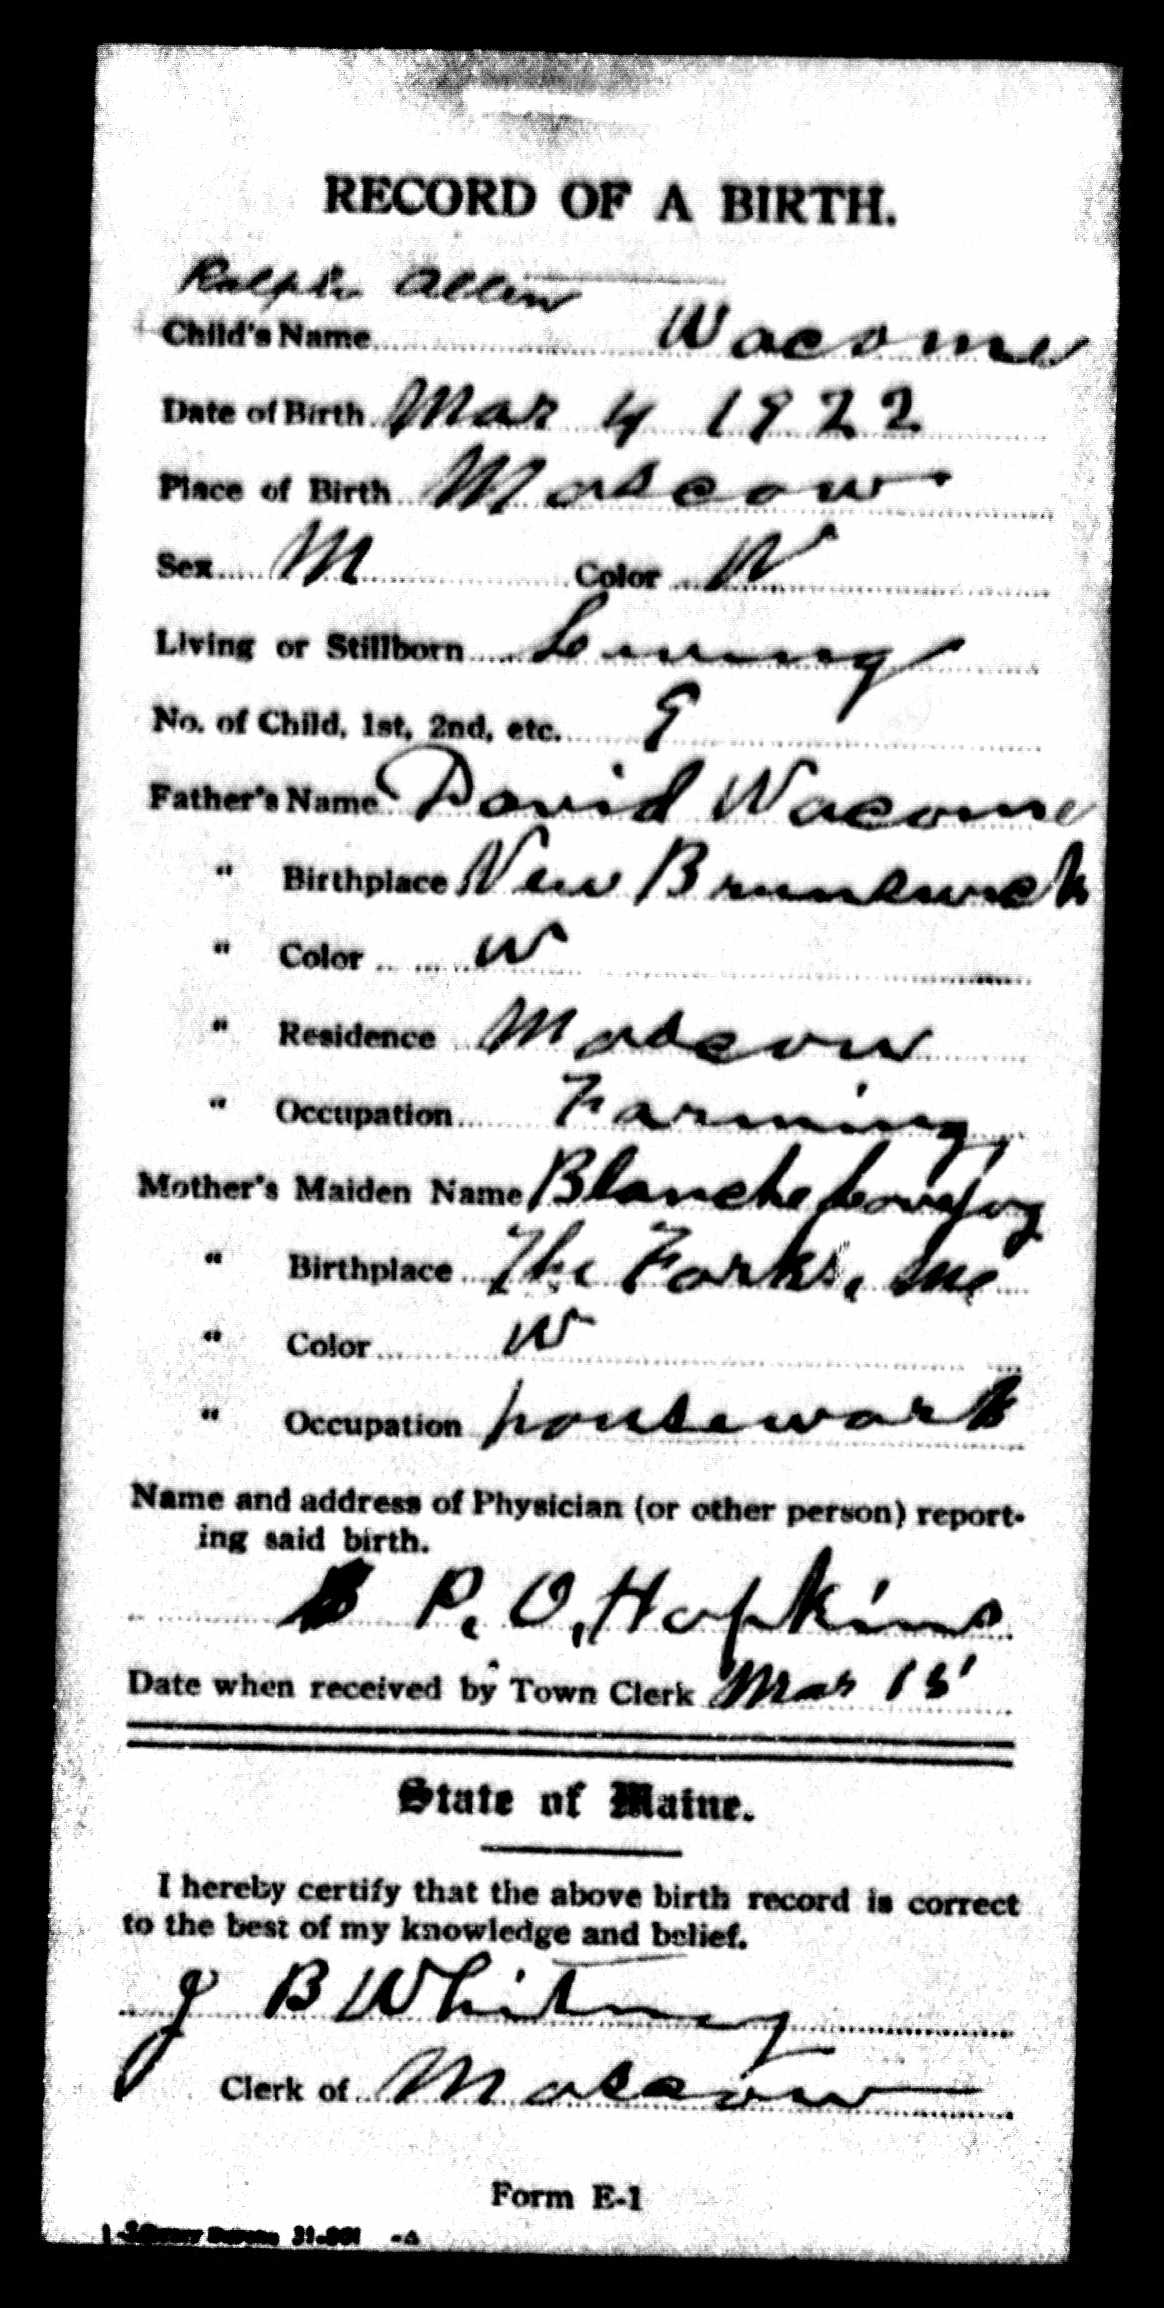 RECORD OF A BIRTH.
Ralph Allen
Child's Name Wacome
Date of Birth Mar 4 1922
Place of Birth Moscow
Sex M Color W
Living or Stillborn Living
No. of Child, 1st, 2nd, etc. 9
Father's Name David Wacome
" Birthplace New Brunswick
" Color W
" Residence Moscow
" Occupation Farming
Mother's Maiden Name Blanche Lovejoy
" Birthplace The Forks, Me
" Color W
" Occupation housework
Name and address of Physician (or other person) report-
ing said birth.
P. O. Hopkins
Date when received by Town Clerk Mar 15
State of Maine.
I hereby certify that the above birth record is correct
to the best of my knowledge and belief.
J B Whitney
Clerk of Moscow
Form E-1